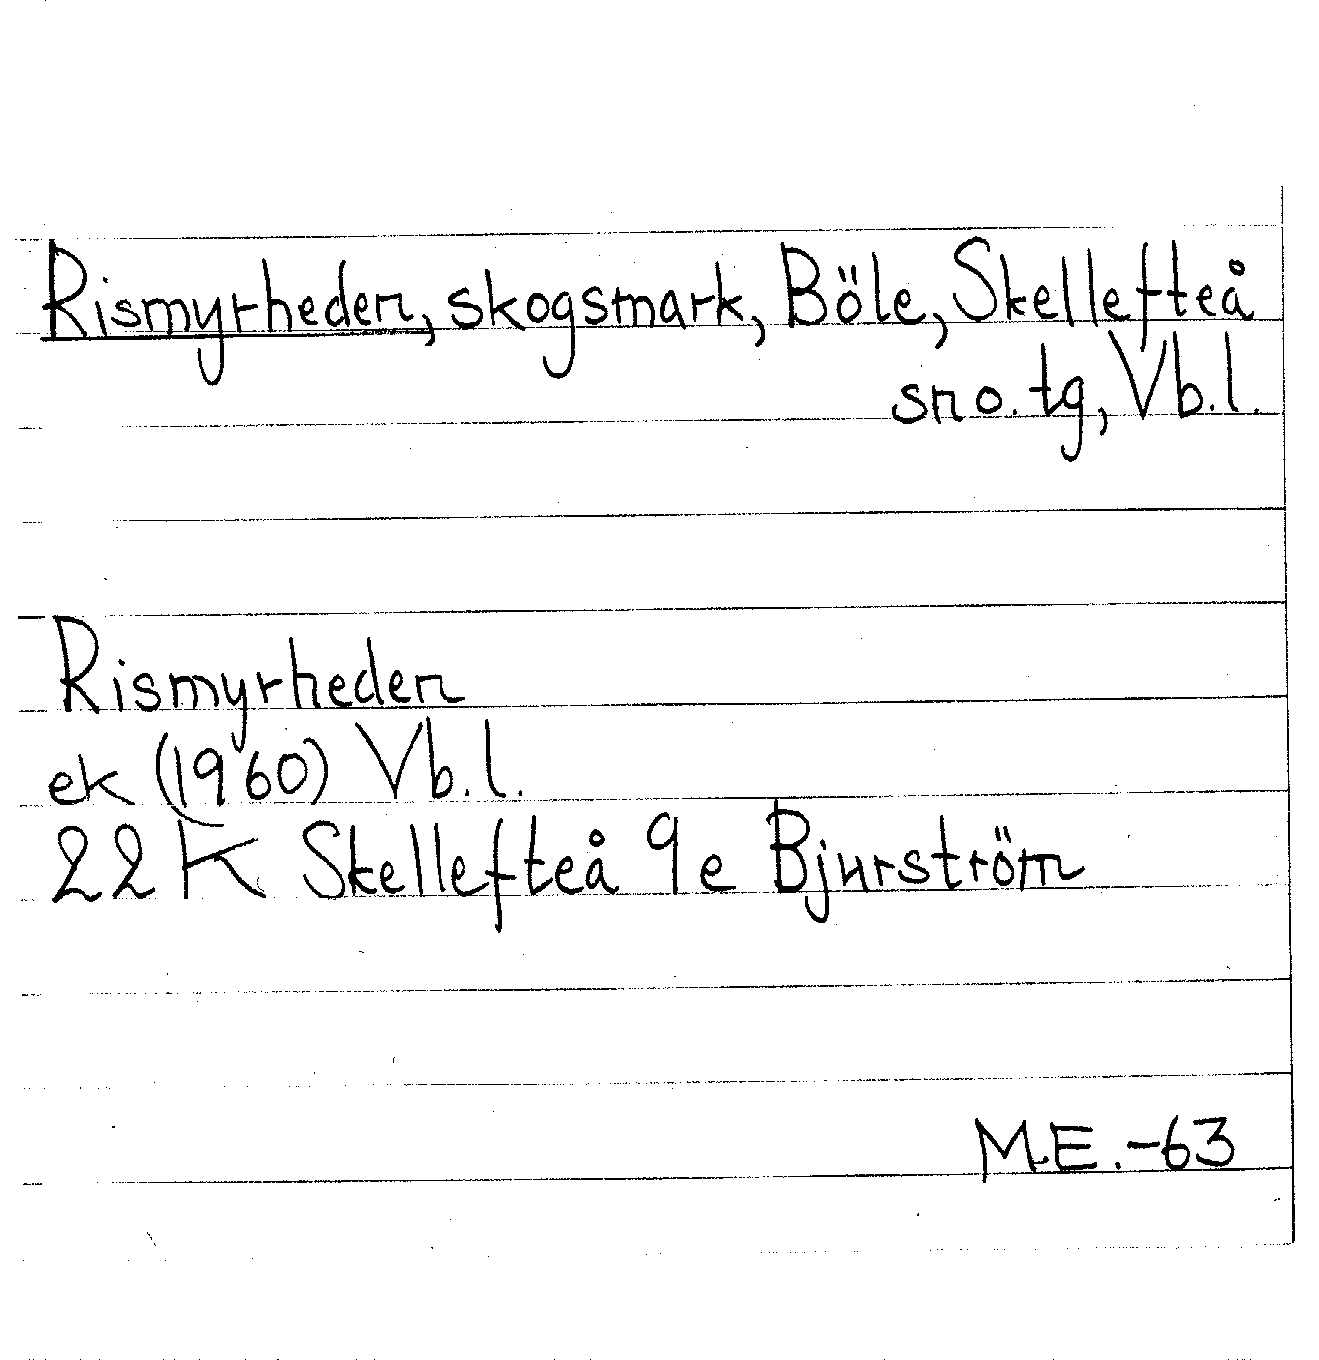 Rismyrheden, skogsmark, Böle, Skellefteå
sn o. tg, Vb.l.
Rismyrheden
ek (1960) Vb.l.
22 K Skellefteå 9e Bjurström
M.E.-63